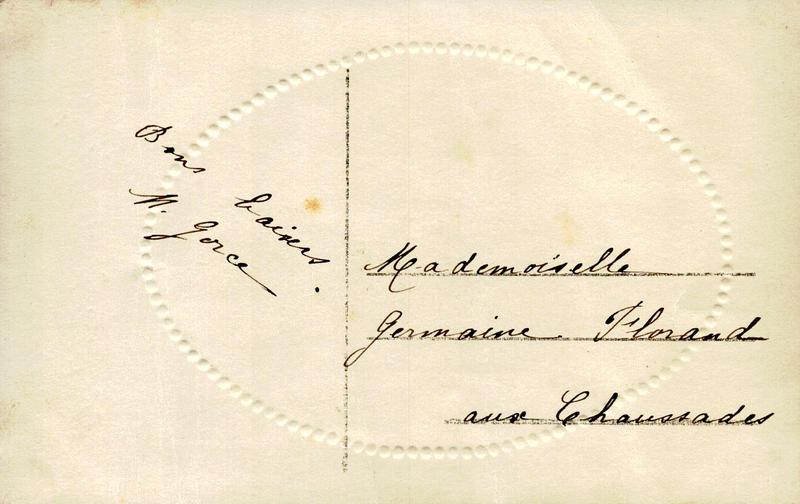 Bons baisers.
M. Gorce
Mademoiselle
Germaine Florand
aux Chaussades